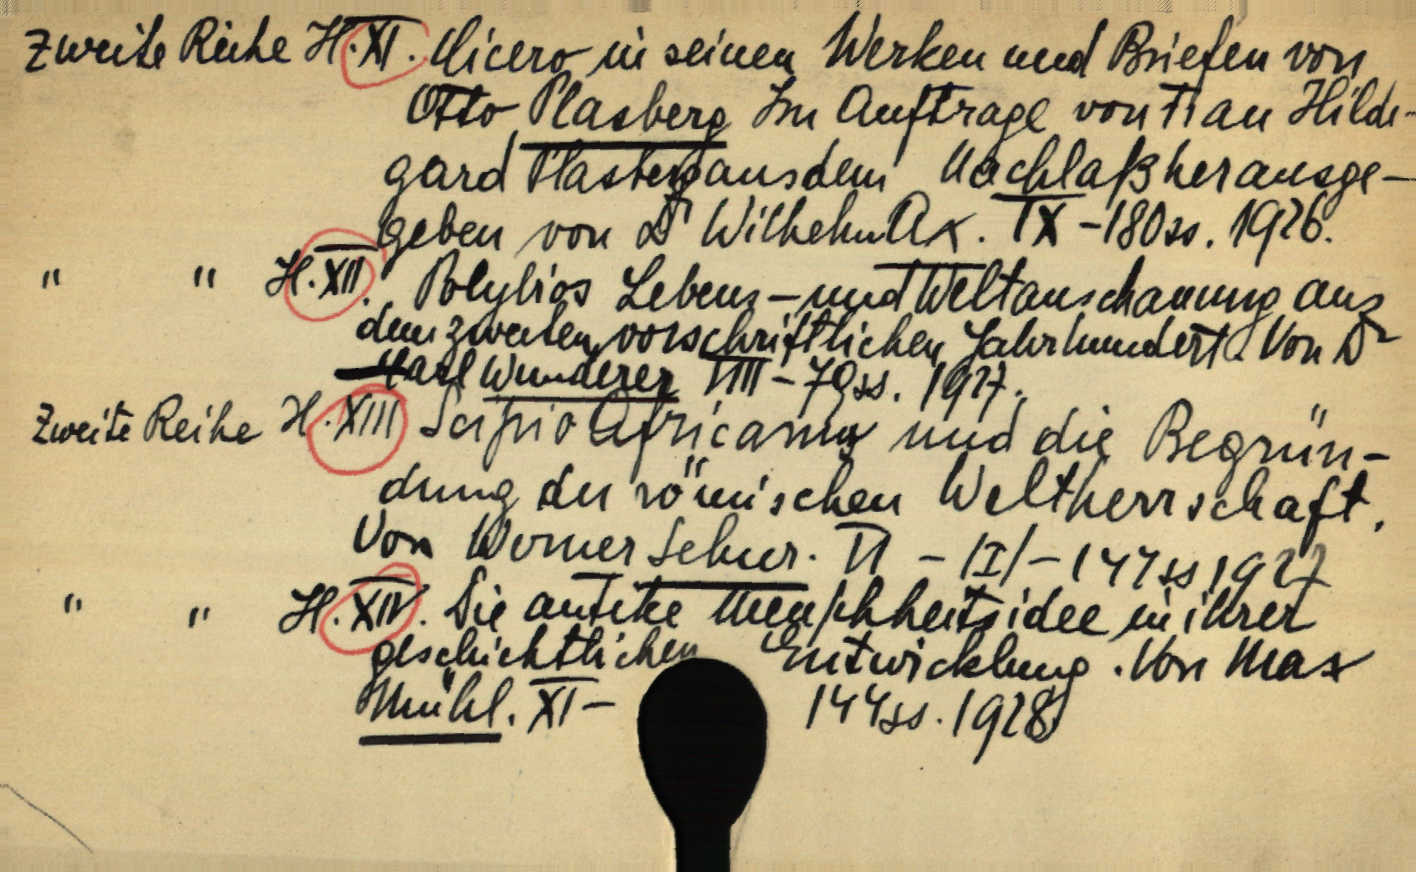 Zweite Reihe H. XI. Cicero in seinen Werken und Briefen von
Otto Plasberg Im Auftrage von Frau Hilde-
gard Plasberg aus dem Nachlaß herausge-
geben von Dr Wilhelm Ax. IX - 180 ss. 1926.
" " H. XII. Polybios Lebens- und Weltanschauung aus
dem zweiten vorschriftlichen Jahrhundert. Von Dr
Carl Wunderer VIII - 79 ss. 1927.
Zweite Reihe H. XIII Scipio Africanus und die Begrün-
dung der römischen Weltherrschaft.
Von Werner Schur. VI - /I/ - 144 ss 1927
" " H. XIV. Die antike Menschheitsidee in ihrer
geschichtlichen Entwicklung. Von Max
Mühl. XI - 144 ss. 1928